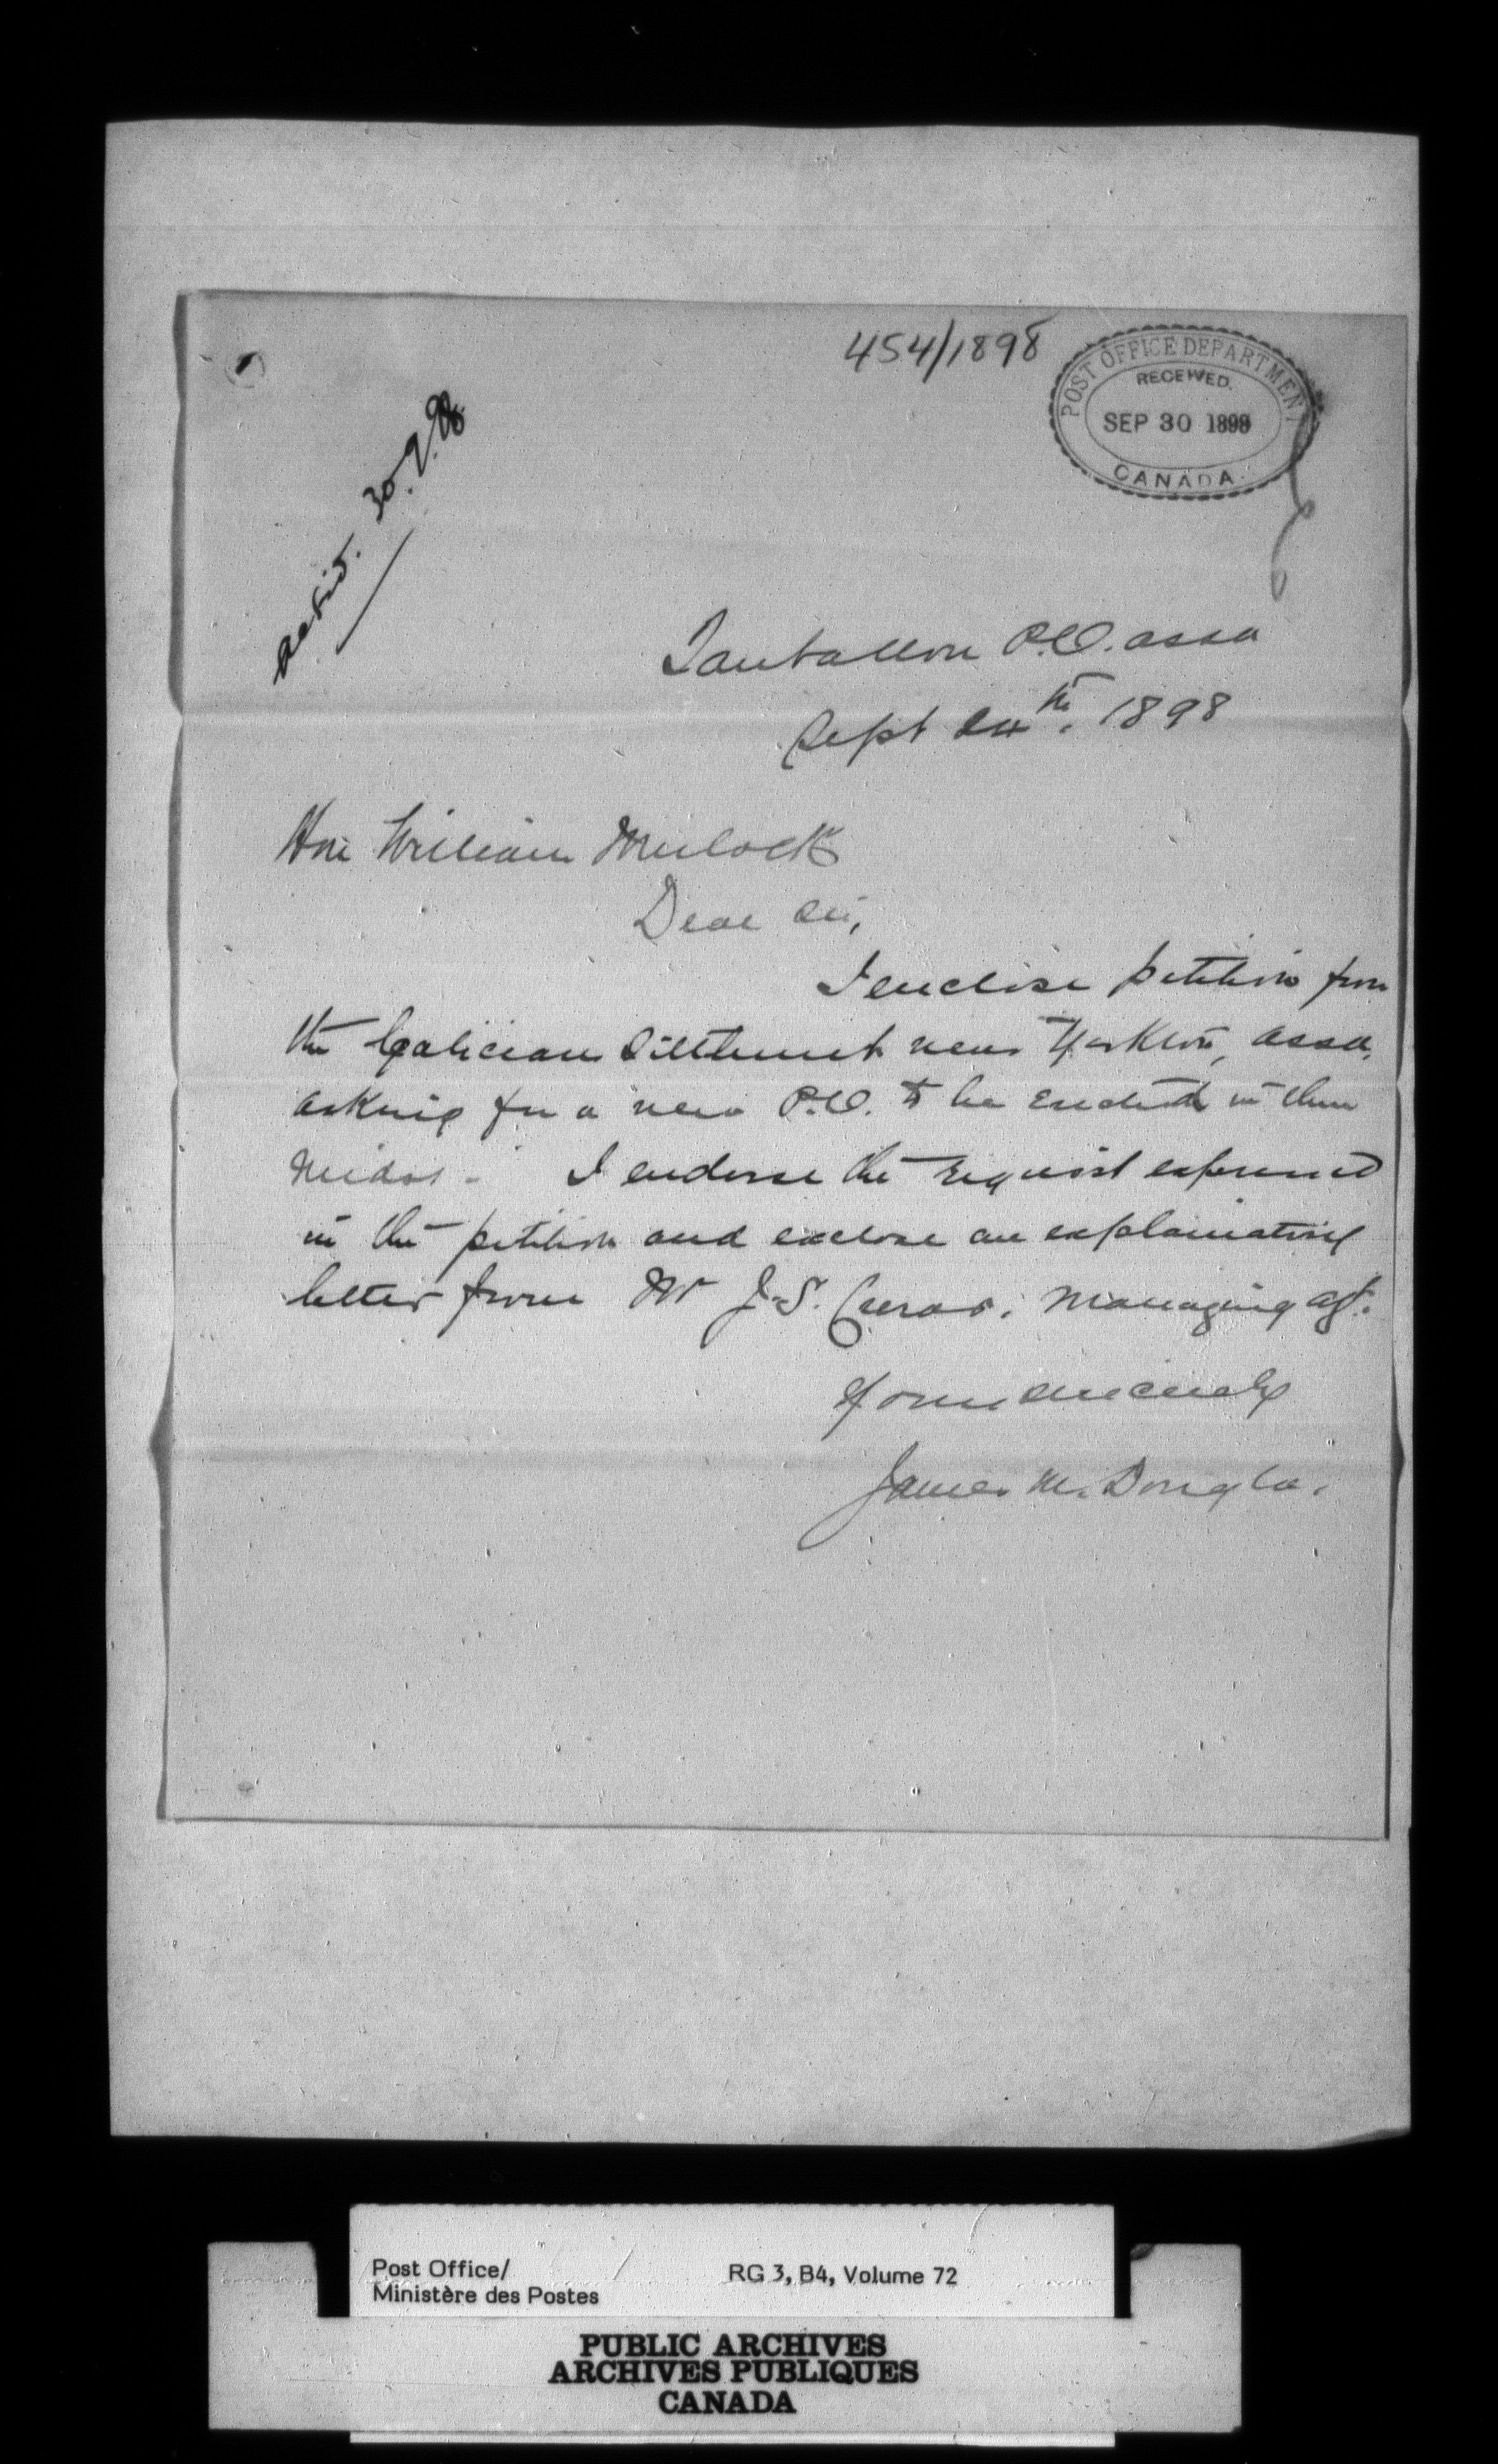 454/1898
POST OFFICE DEPARTMENT
RECEIVED.
SEP 30 1898
CANADA.
30.9.98
Tantallon P.O. Assa
Sept 24th. 1898
Hon William Mulock
Dear Sir,
I enclose petition from
the Galician Settlement near Yorkton, Assa,
asking for a new P.O. to be erected in their
midst - I endorse the request expressed
in the petition and enclose an explanatory
letter from Mr J.S. Crerar. Managing agt.
Yours sincerely
James M. Douglas.
Post Office/
Ministère des Postes
RG 3, B4, Volume 72
PUBLIC ARCHIVES
ARCHIVES PUBLIQUES
CANADA